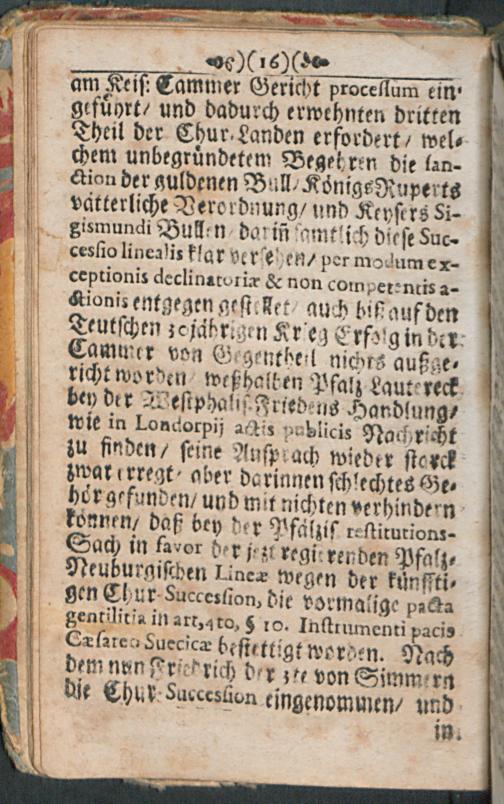 )(16)(
am Keis: Cammer Gericht processum ein-
geführt/ und dadurch erwehnten dritten
Theil der Chur-Landen erfordert/ wel-
chem unbegründetem Begehren die san-
ction der guldenen Bull/ Königs Ruperts
vätterliche Verordnung/ und Keysers Si-
gismundi Bullen/ dariñ samtlich diese Suc-
cessio linealis klar versehen/ per modum ex-
ceptionis declinatoriæ & non competentis a-
ctionis entgegen gestellet/ auch biß auf den
Teutschen 30jährigen Krieg Erfolg in der
Cammer von Gegentheil nichts außge-
richt worden/ weßhalben Pfalz Lautereck
bey der Westphalis. Friedens Handlung/
wie in Londorpij actis publicis Nachricht
zu finden/ seine Ansprach wieder starck
zwar erregt/ aber darinnen schlechtes Ge-
hör gefunden/ und mit nichten verhindern
können/ daß bey der Pfälzis. restitutions-
Sach in favor der jezt regierenden Pfalz-
Neuburgischen Lineæ wegen der künffti-
gen Chur-Succession, die vormalige pacta
gentilitia in art, 4to, § 10. Instrumenti pacis
Cæsareo Suecicæ bestettigt worden. Nach
dem nun Friedrich der 3te von Simmern
die Chur-Succession eingenommen/ und
in.